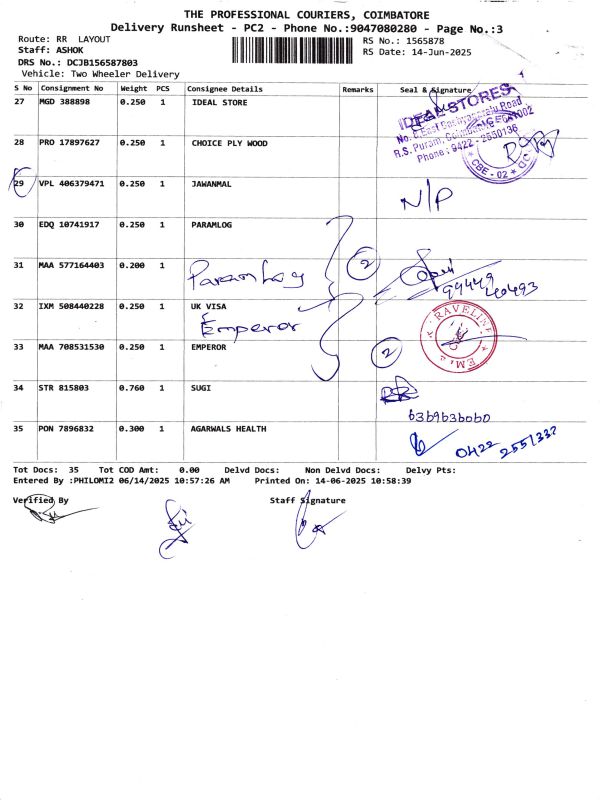 THE PROFESSIONAL COURIERS, COIMBATORE
Delivery Runsheet - PC2 - Phone No.:9047080280 - Page No.:3
Route: RR LAYOUT
Staff: ASHOK
DRS No.: DCJB156587803
Vehicle: Two Wheeler Delivery
RS No.: 1565878
RS Date: 14-Jun-2025
S No Consignment No Weight PCS Consignee Details Remarks Seal & Signature
27 MGD 388898 0.250 1 IDEAL STORE
IDEAL STORES
R.S. Puram, Coimbatore
Phone: 0422 - 2550136
28 PRO 17897627 0.250 1 CHOICE PLY WOOD
CBE - 02
29 VPL 406379471 0.250 1 JAWANMAL
N/P
30 EDQ 10741917 0.250 1 PARAMLOG
31 MAA 577164403 0.200 1
Paramlog
2
99449
40493
32 IXM 508440228 0.250 1 UK VISA
Emperor
RAVELINE
33 MAA 708531530 0.250 1 EMPEROR
2
34 STR 815803 0.760 1 SUGI
6369636060
35 PON 7896832 0.300 1 AGARWALS HEALTH
0422 2551337
Tot Docs: 35 Tot COD Amt: 0.00 Delvd Docs: Non Delvd Docs: Delvy Pts:
Entered By :PHILOMI2 06/14/2025 10:57:26 AM Printed On: 14-06-2025 10:58:39
Verified By Staff Signature